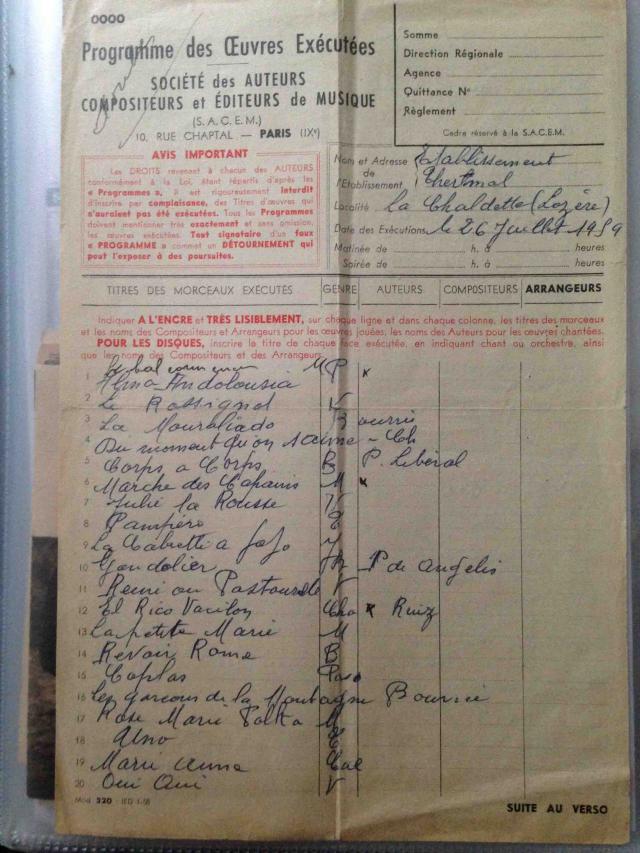 0000
Programme des Œuvres Exécutées
SOCIÉTÉ des AUTEURS
COMPOSITEURS et ÉDITEURS de MUSIQUE
(S.A.C.E.M.)
10, RUE CHAPTAL — PARIS (IXe)
Somme
Direction Régionale
Agence
Quittance No
Règlement
Cadre réservé à la S.A.C.E.M.
AVIS IMPORTANT
Les DROITS revenant à chacun des AUTEURS
conformément à la Loi, étant répartis d'après les
« Programmes », il est rigoureusement Interdit
d'inscrire par complaisance, des Titres d'œuvres qui
n'auraient pas été exécutées. Tous les Programmes
doivent mentionner très exactement et sans omission,
les œuvres exécutées. Tout signataire d'un faux
« PROGRAMME » commet un DÉTOURNEMENT qui
peut l'exposer à des poursuites.
Nom et Adresse de l'Etablissement Etablissement Thermal
Localité La Chaldette (Lozère)
Date des Exécutions le 26 Juillet 1959
Matinée de h. à heures
Soirée de h. à heures
TITRES DES MORCEAUX EXÉCUTÉS GENRE AUTEURS COMPOSITEURS ARRANGEURS
Indiquer A L'ENCRE et TRÈS LISIBLEMENT, sur chaque ligne et dans chaque colonne, les titres des morceaux
et les noms des Compositeurs et Arrangeurs pour les œuvres jouées, les noms des Auteurs pour les œuvres chantées.
POUR LES DISQUES, inscrire le titre de chaque face exécutée, en indiquant chant ou orchestre, ainsi
que les noms des Compositeurs et des Arrangeurs.
1 Alma Andolousia P
2 Le Rossignol V
3 La Mourallado Bourrée
4 Du moment qu'on s'aime - Ch
5 Corps a Corps B P. Libéral
6 Marche des M
7 Julie la Rousse V
8 Pampero
9 La Cabrette a Jojo
10 Gondolier P de Angelis
11 Remi ou Pastourelle V
12 El Rico Vacilon Cha Ruiz
13 La petite Marie M
14 Revoir Rome B
15 Coplas Paso
16 Les garcons de la Montagne Bourrée
17 Rose Marie Polka
18
19 Marie Anne Cal
20 Oui Oui V
Mod 320 - IED 1-58
SUITE AU VERSO